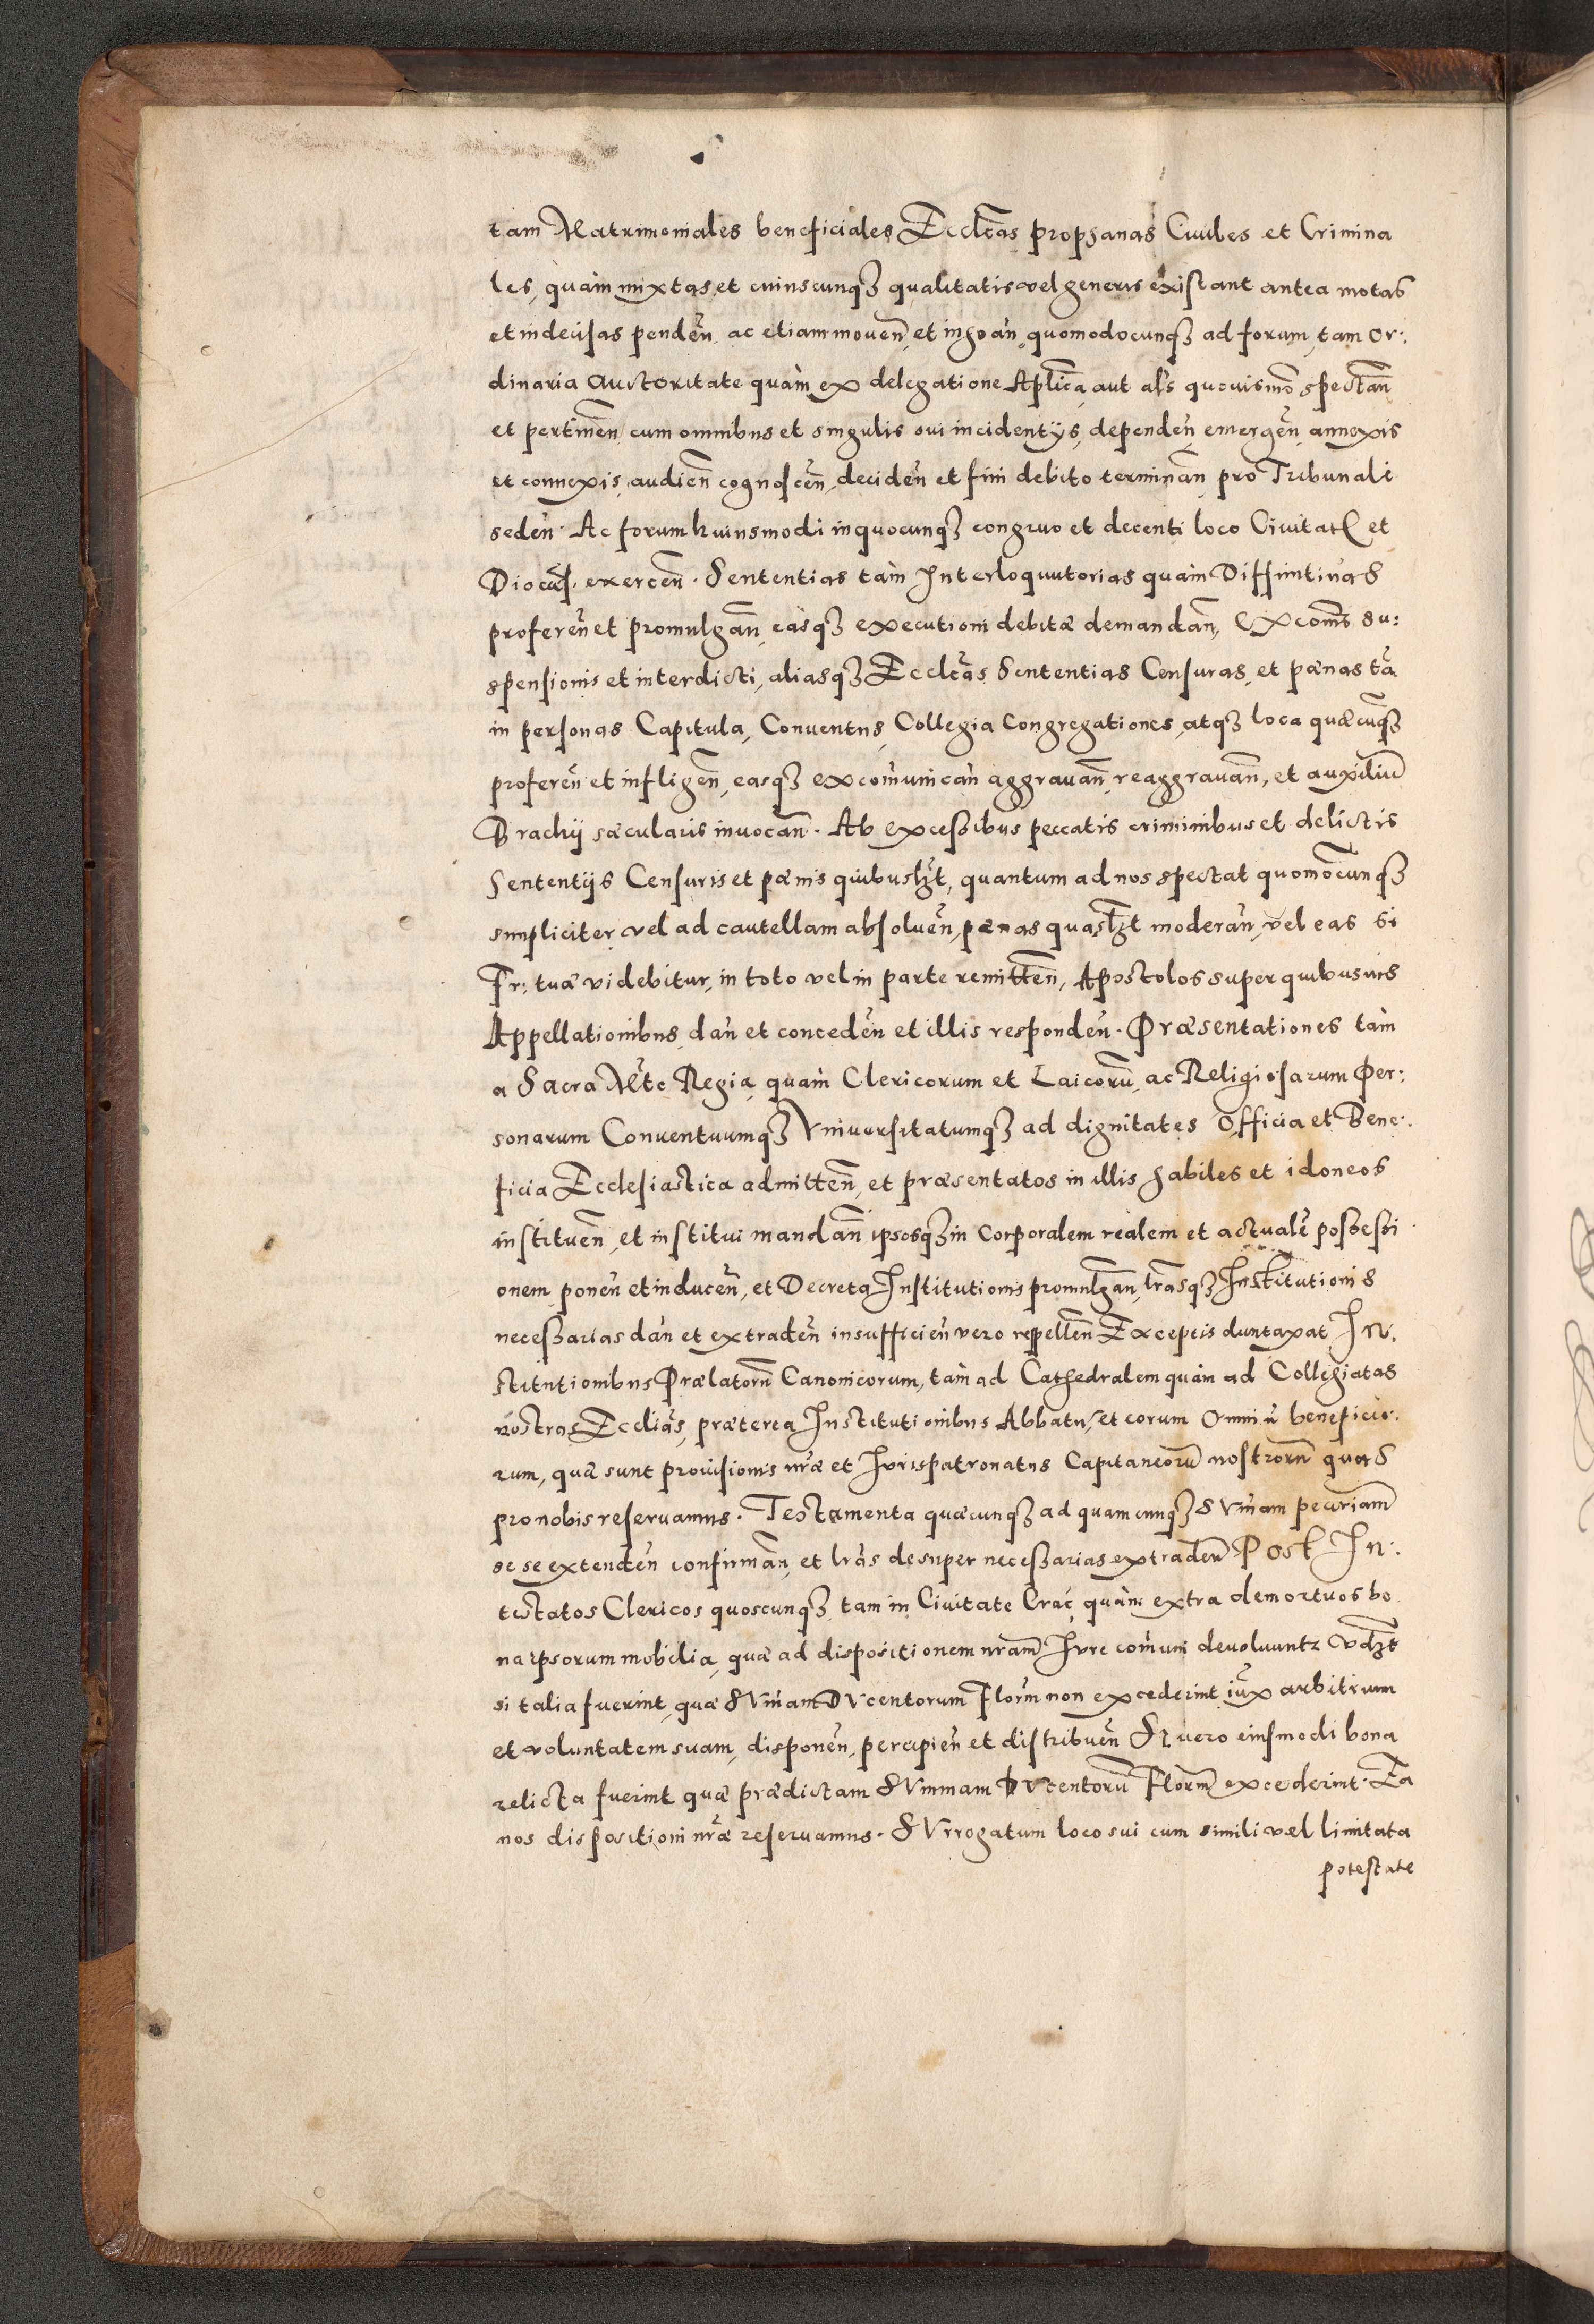 tam Matrimoniales beneficiales Ecclãs prophanas Ciuiles et Crimina
les, quàm mixtas et cuiuscunq3 qualitatis vel generis existant antea motas
et indecisas pendeñ ac etiam moueñ et inhoañ quomodocunq3 ad forum, tam or:
dinaria auctoritate quàm ex delegatione Aplica aut als quouismõ spectañ
et pertineñ cum omnibus et singulis sui incidentijs, dependeñ emergeñ annexis
et connexis, audieñ cognosceñ, decideñ et fini debito terminañ pro Tribunali
sedeñ. Ac forum huiusmodi in quocunq3 congruo et decenti loco Ciuitat et
Dioces. exerceñ. Sententias tàm Interloquutorias quàm Diffinitiuas
profereñ et promulgañ, easq3 executioni debitæ demandañ, Excoms su:
spensionis et interdicti, aliasq3 Ecclãs Sententias Censuras, et pænas tã
in personas Capitula, Conuentus, Collegia Congregationes, atq3 loca quæcũq3
profereñ et infligeñ, easq3 excomunicañ aggrauañ reaggrauañ, et auxiliũ
Brachij sæcularis inuocañ. Ab excessibus peccatis criminibus et delictis
Sententijs Censuris et pænis quibuslzt, quantum ad nos spectat quomõcunq3
simpliciter vel ad cautellam absolueñ, pænas quaslzt moderañ, vel eas si
Fr: tuæ videbitur, in toto vel in parte remitteñ, Apostolos super quibusuis
Appellationibus dañ et concedeñ et illis respondeñ. Præsentationes tàm
a Sacra Mte Regia quàm Clericorum et Laicorũ, ac Religiosarum Per:
sonarum Conuentuumq3 Vniuersitatumq3 ad dignitates Officia et Bene:
ficia Ecclesiastica admitteñ, et præsentatos in illis habiles et idoneos
instituen͂, et institui mandañ ipsosq3 in corporalem realem et actualẽ possessi
onem poneñ et induceñ, et Decreta Institutionis promulgañ, lrãsq3 Institutionis
necessarias dañ et extradeñ insufficieñ vero repelleñ Exceptis duntaxat In:
stitutionibus Prælatorũ Canonicorum, tàm ad Cathedralem quàm ad Collegiatas
nostras Ecclias, præterea Institutionibus Abbatũ, et eorum Omniũ beneficio:
rum, quæ sunt prouisionis nræ et Iurispatronatus Capitaneorũ nostrorũ quas
pro nobis reseruamus. Testamenta quæcunq3 ad quamcunq3 SVmam pecuriam
se se extendeñ confirmañ, et lrãs desuper necessarias extradeñ Post In:
testatos Clericos quoscunq3 tam in Ciuitate Crac quàm extra demortuos bo
na ipsorum mobilia, quæ ad dispositionem nram Iure comuni deuoluuntr vdzt
si talia fuerint, quæ SVmam DVcentorum Florm non excederint iux arbitrium
et voluntatem suam, disponeñ, percipieñ et distribueñ Si vero eiusmodi bona
relicta fuerint quæ prædictam SVmmam DVcentorũ Florm excederint. Ea
nos dispositioni nræ reseruamus. SVrrogatum loco sui cum simili vel limitata
potestate